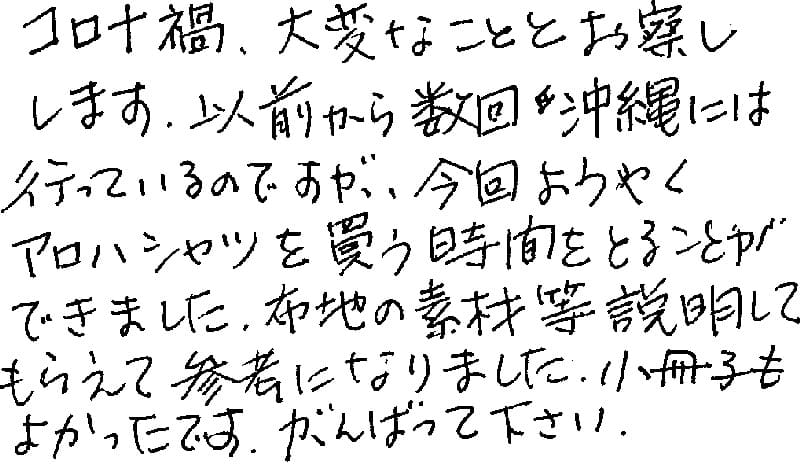 コロナ禍、大変なこととお察し
します。以前から数回沖縄には
行っているのですが、今回ようやく
アロハシャツを買う時間をとることが
できました。布地の素材等説明して
もらえて参考になりました。小冊子も
よかったです。がんばって下さい。